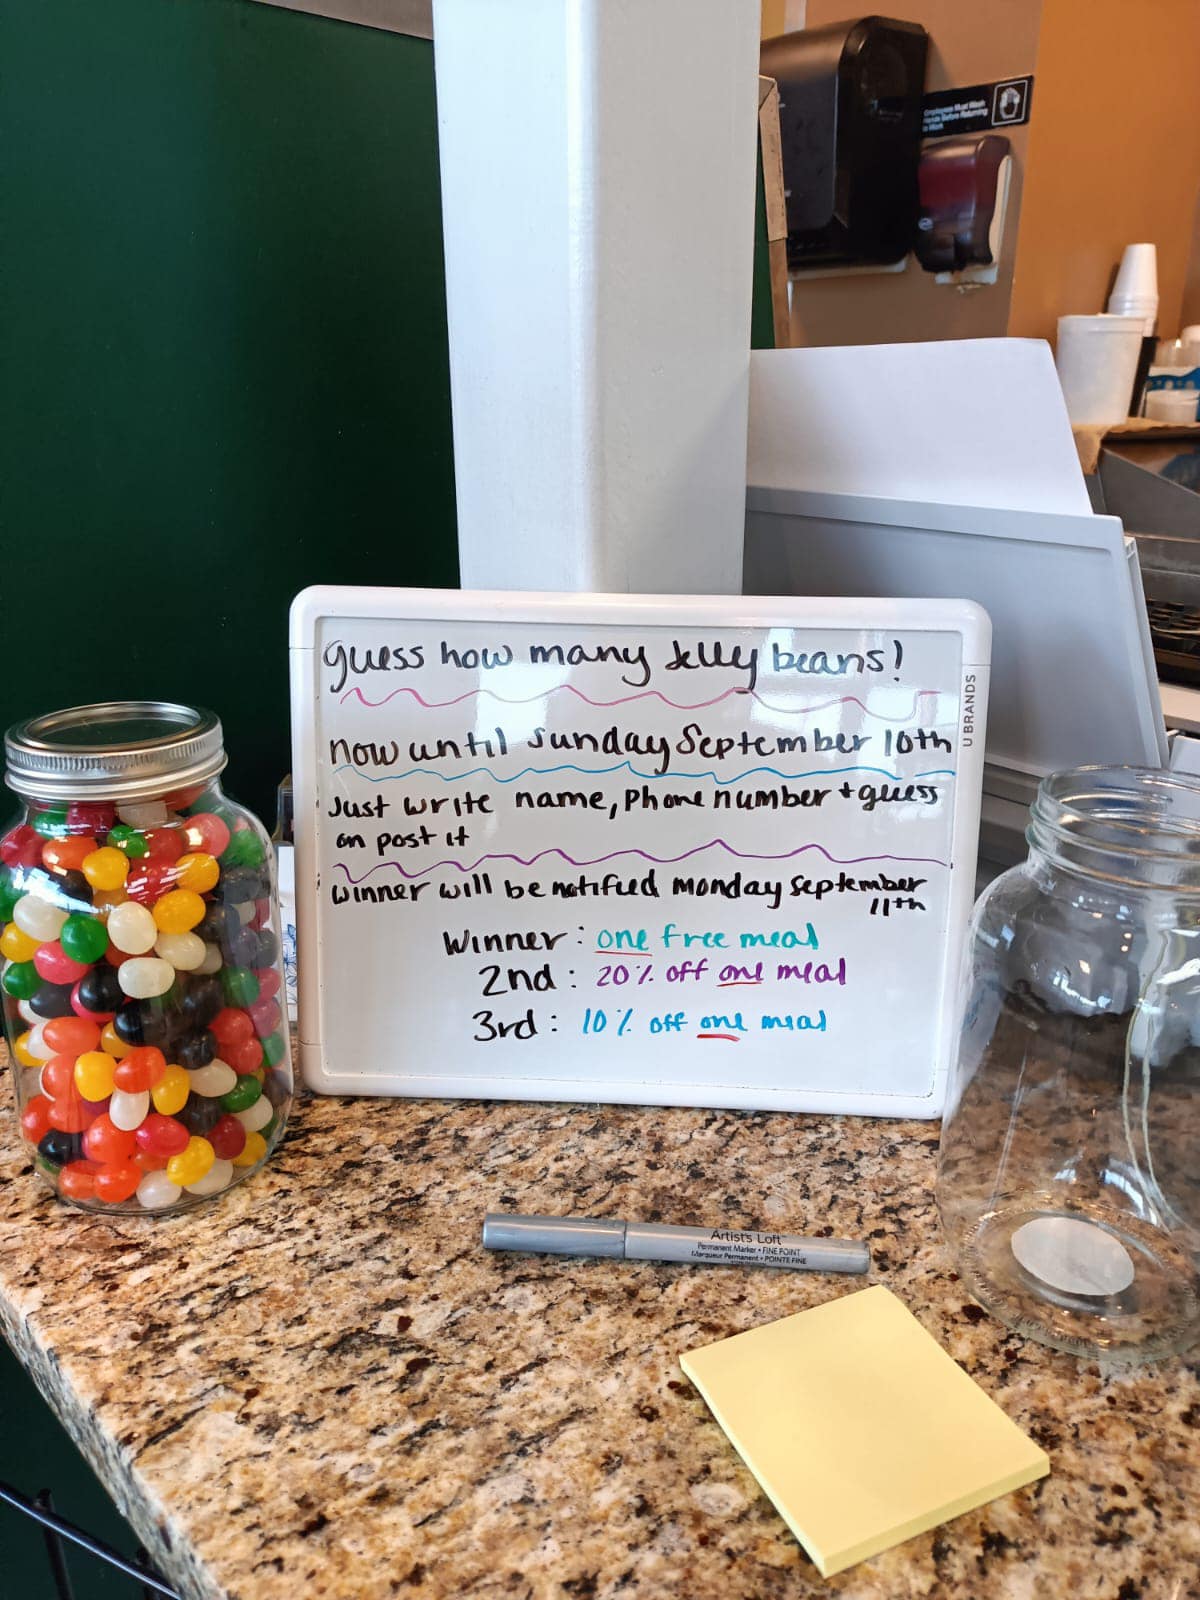 Employees Must Wash
Hands Before Returning
to Work
guess how many Jelly beans!
U BRANDS
now until Sunday September 10th
Just write name, phone number + guess
on post it
winner will be notified monday September
11th
Winner: one free meal
2nd: 20% off one meal
3rd: 10% off one meal
Artist's Loft
Permanent Marker • FINE POINT
Marqueur Permanent • POINTE FINE